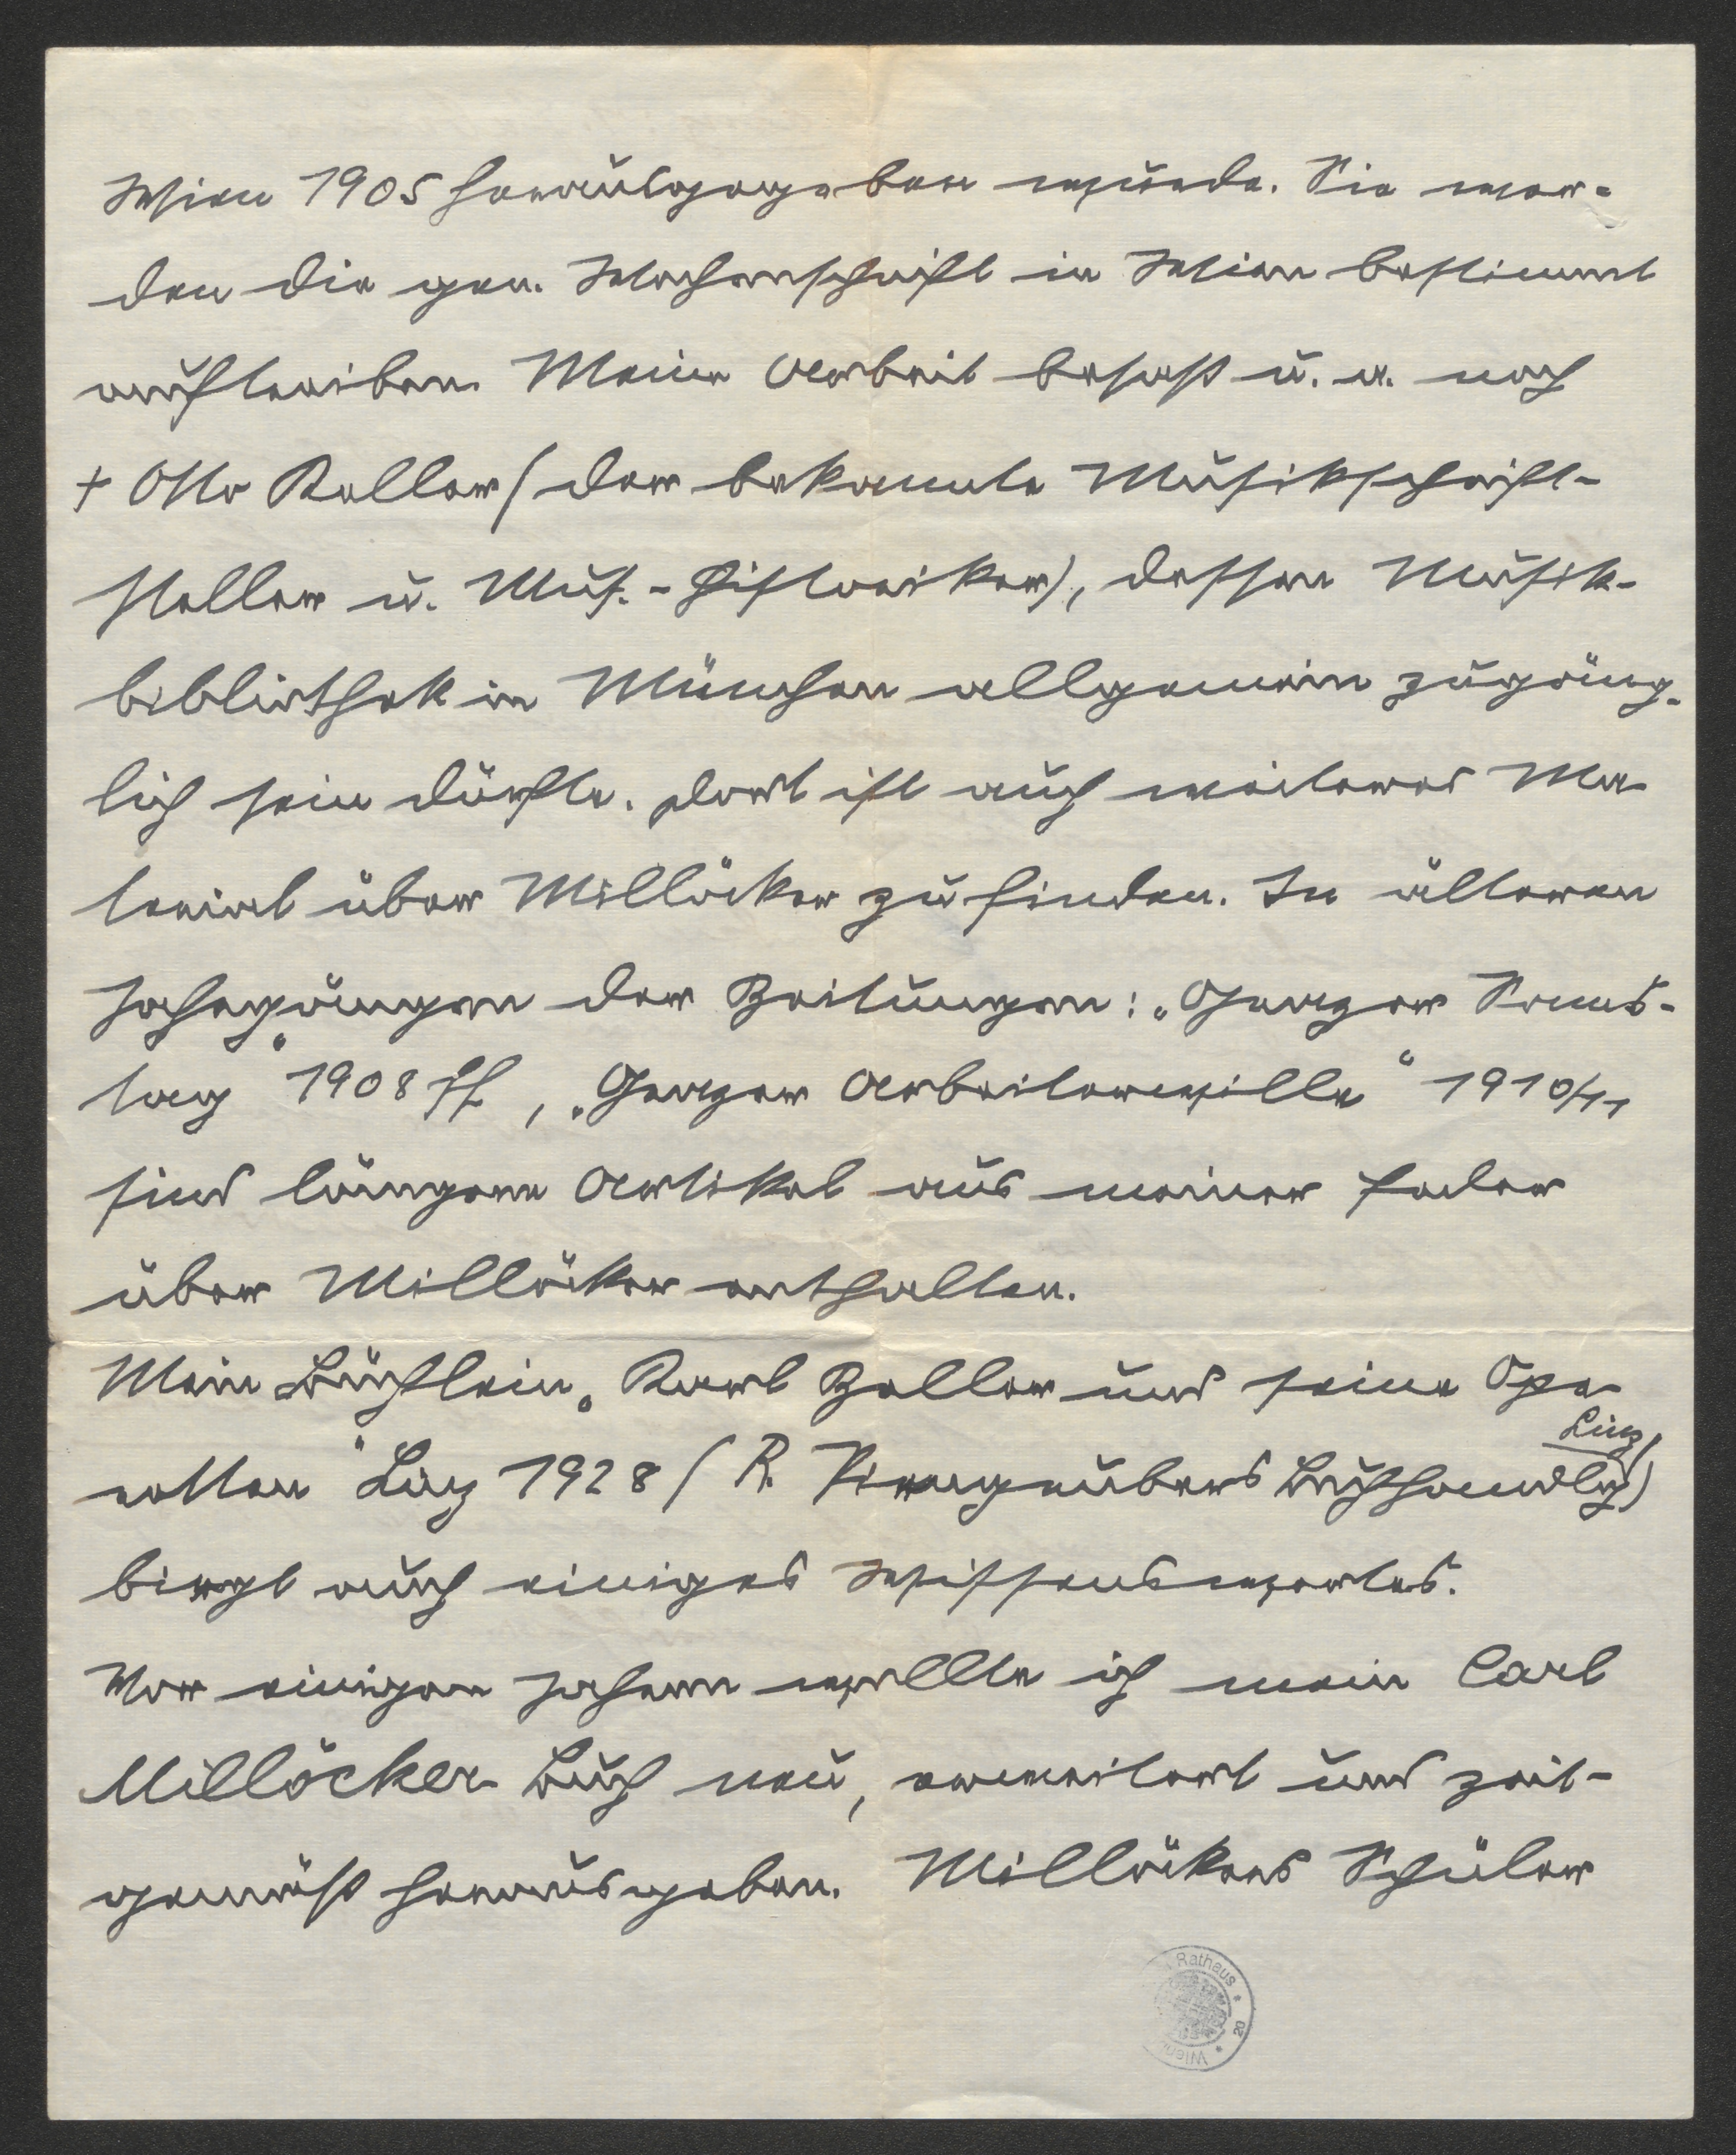 Wien 1905 herausgegeben wurde. Sie wer-
den die gen. Wochenschrift in Wien bestimmt
auftreiben. Meine Arbeit besaß u. a. noch
+ Otto Keller (der bekannte Musikschrift-
steller u. Mus.-Historiker), dessen Musik-
bibliothek in München allgemein zugäng-
lich sein dürfte. Dort ist auch weiteres Ma-
terial über Millöcker zu finden. In älteren
Jahrgängen der Zeitungen: „Grazer Sonns-
tag“ 1908 ff, „Grazer Arbeiterwille“ 1910/11
sind längere Artikel aus meiner Feder
über Millöcker enthalten.
Mein Büchlein „Karl Zeller und seine Ope-
retten“ Linz 1928 (R. Pirngrubers Buchhandlg Linz)
birgt auch einiges Wissenswertes.
Vor einigen Jahren wollte ich mein Carl
Millöcker Buch neu, erweitert und zeit-
gemäß herausgeben. Millöckers Schüler
Rathaus * 20 * Wien